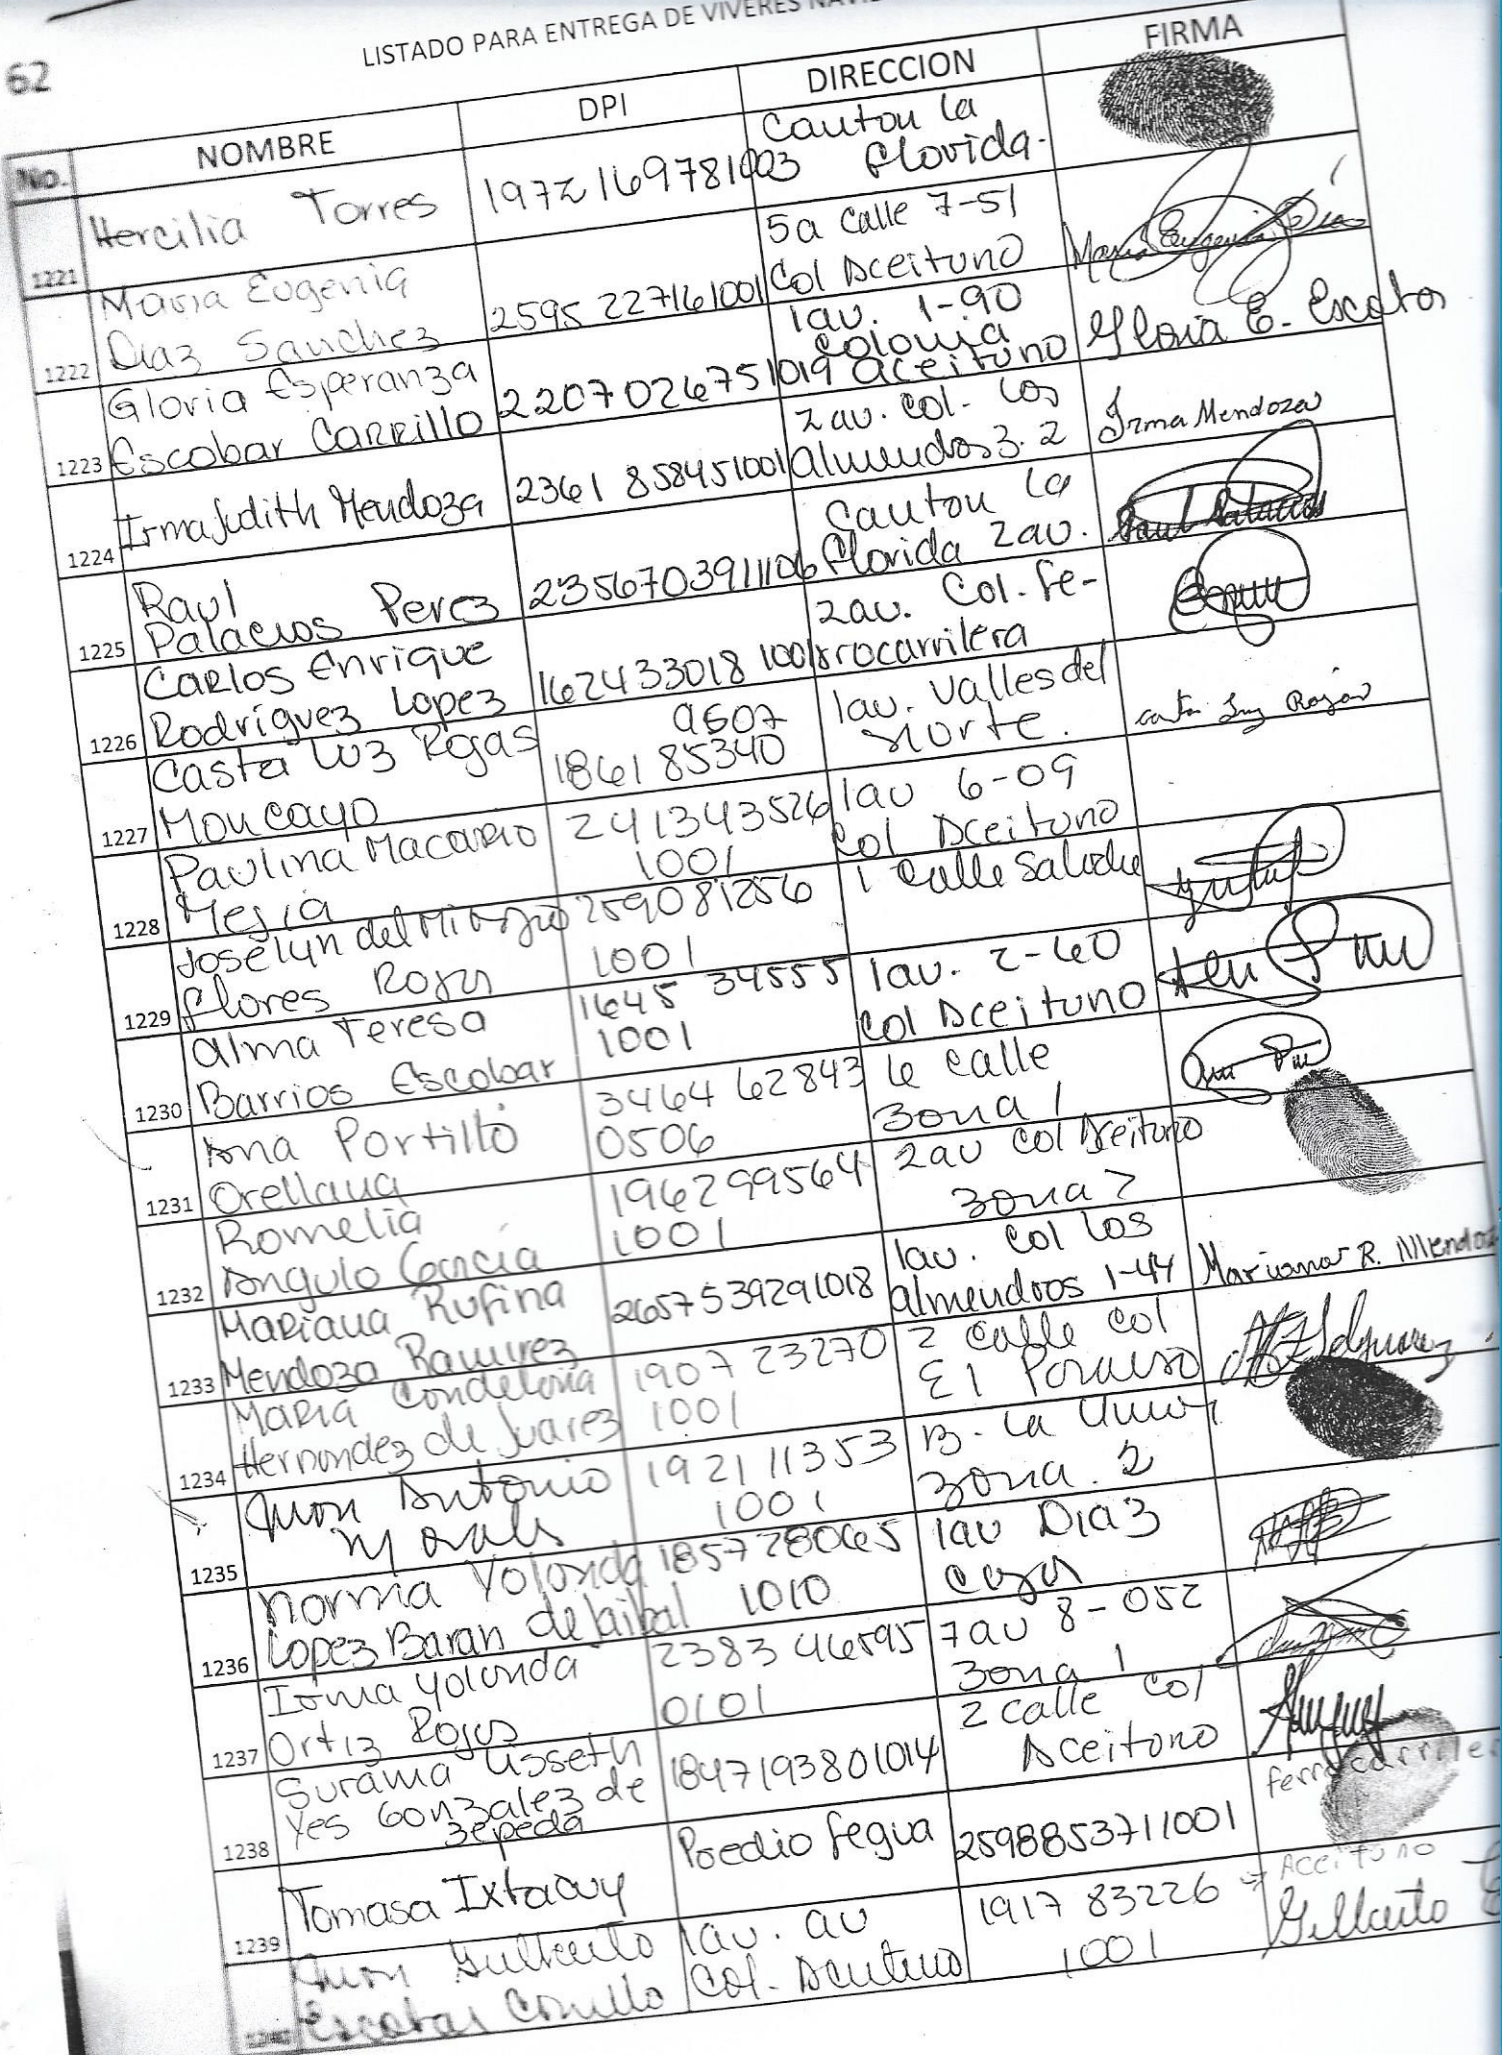 62
LISTADO PARA ENTREGA DE VIVERES
No. NOMBRE DPI DIRECCION FIRMA
1221 Hercilia Torres 1972169781003 Canton la
Florida.
1222 Maria Eugenia
Diaz Sanchez 2595 227161001 5a calle 7-51
Col Aceituno Maria Eugenia Diaz
1223 Gloria Esperanza
Escobar Carrillo 2207026751019 1av. 1-90
Colonia
aceituno Gloria E. Escobar
1224 Irma Judith Mendoza 2361 858451001 2av. Col. los
almendros 3.2 Irma Mendoza
1225 Raul
Palacios Perez 2356703911106 Canton la
Florida 2av. Raul Palacios
1226 Carlos Enrique
Rodriguez Lopez 162433018 1001 2av. Col. Fe-
rrocarrilera
1227 Casta Luz Rojas
Moncayo 0607
1861 85340 1av. Valles del
Norte. casta luz Rojas
1228 Paulina Macario
Mejia 241343526
1001 1av 6-09
Col Aceituno
1229 Joselyn del Milagro
Flores Rojas 259081256
1001 1 Calle Salache
1230 alma Teresa
Barrios Escobar 1645 34555
1001 1av. 2-60
Col Aceituno
1231 Ana Portillo
Orellana 3464 62843
0506 6 calle
Zona 1
1232 Romelia
Angulo Garcia 196299564
1001 2av Col Aceituno
Zona 2
1233 Mariana Rufina
Mendoza Ramirez 2657539291018 1av. Col los
almendros 1-44 Mariana R. Mendoz
1234 Maria Candelaria
Hernandez de Juarez 1907 23270
1001 2 calle Col
El Paraiso
1235 Juan Antonio
Morales 1921 11353
1001 B. La Union
Zona. 2
1236 Norma Yolanda
Lopez Baran de 185728065
1010 1av Diaz
1237 Irma Yolanda
Ortiz Rojas 2383 46595
0101 7av 8-052
Zona 1
1238 Surama Lisseth
Yes Gonzalez de
Zepeda 1847193801014 2 calle Col
Aceituno
1239 Tomasa Ixtacuy Predio Fegua 2598853711001 ferrocarriler
1240 Juan Gilberto
Escobar Carrillo 1av. av
Col. Aceituno 1917 83226
1001 Aceituno
Gilberto E